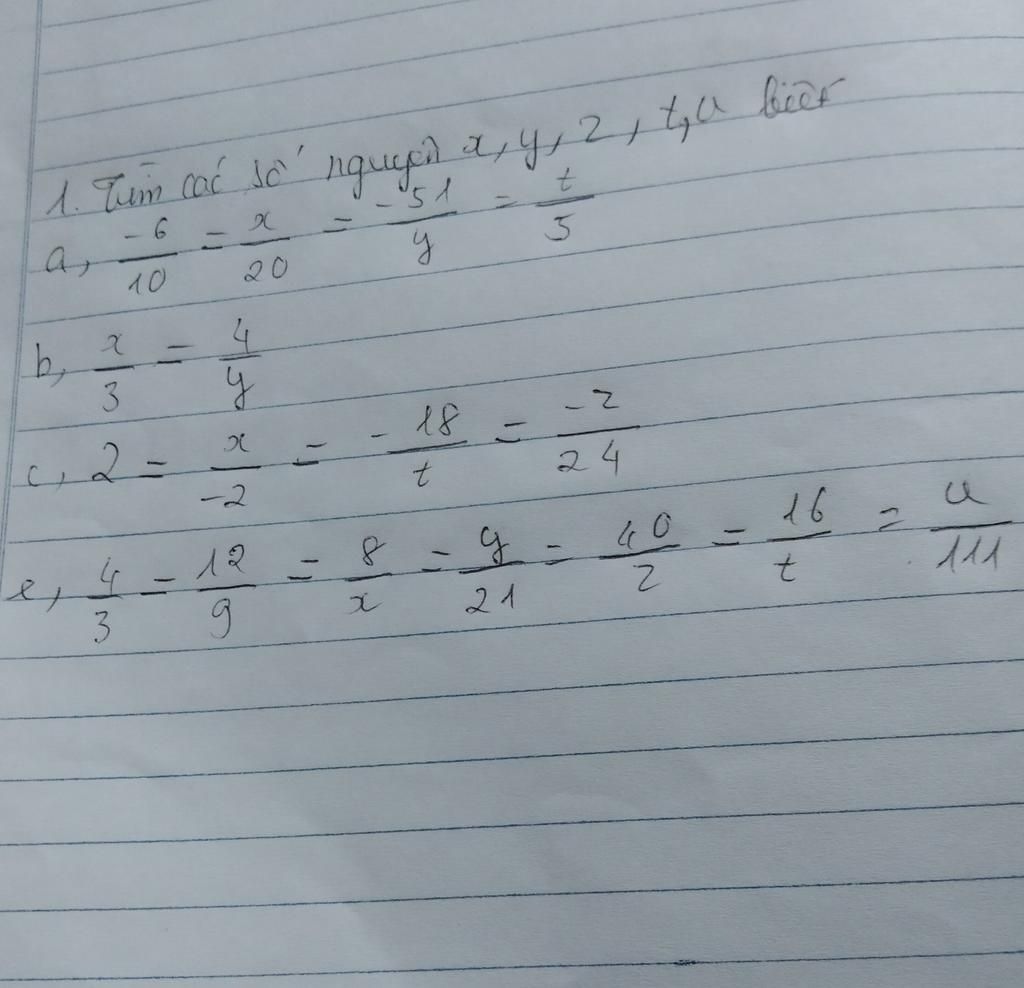 1. Tìm các số nguyên x, y, z, t, u biết
a, -6/10 = x/20 = -51/y = t/5
b, x/3 = 4/y
c, 2 = x/-2 = -18/t = -z/24
e, 4/3 = 12/9 = 8/x = y/21 = 40/z = 16/t = u/111